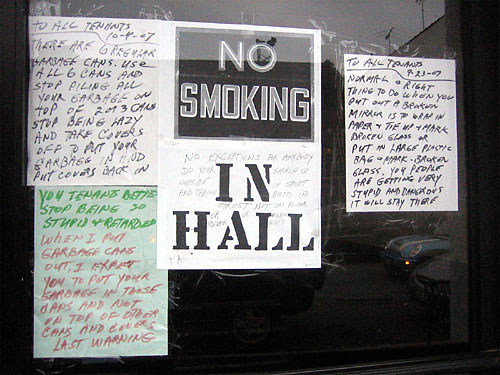 TO ALL TENANTS
10-4-07
THERE ARE 6 REGULAR
GARBAGE CANS. USE
ALL 6 CANS AND
STOP PILING ALL
YOUR GARBAGE ON
TOP OF 2 OR 3 CANS
STOP BEING LAZY
AND TAKE COVERS
OFF TO PUT YOUR
GARBAGE IN AND
PUT COVERS BACK ON
YOU TENANTS BETTER
STOP BEING SO
STUPID & RETARDED
WHEN I PUT
GARBAGE CANS
OUT, I EXPECT
YOU TO PUT YOUR
GARBAGE IN THOSE
CANS AND NOT
ON TOP OF OTHER
CANS AND COVERS
LAST WARNING
NO
SMOKING
NO EXCEPTIONS FOR ANYBODY
DO YOUR SMOKING
OUTSIDE
STREET NOT ON FLOOR
IN
HALL
TO ALL TENANTS
9-23-07
NORMAL & RIGHT
THING TO DO WHEN YOU
PUT OUT A BROKEN
MIRROR IS TO WRAP IN
PAPER & TIE UP & MARK
BROKEN GLASS OR
PUT IN LARGE PLASTIC
BAG & MARK-BROKEN
GLASS. YOU PEOPLE
ARE GETTING VERY
STUPID AND DANGEROUS
IT WILL STAY THERE